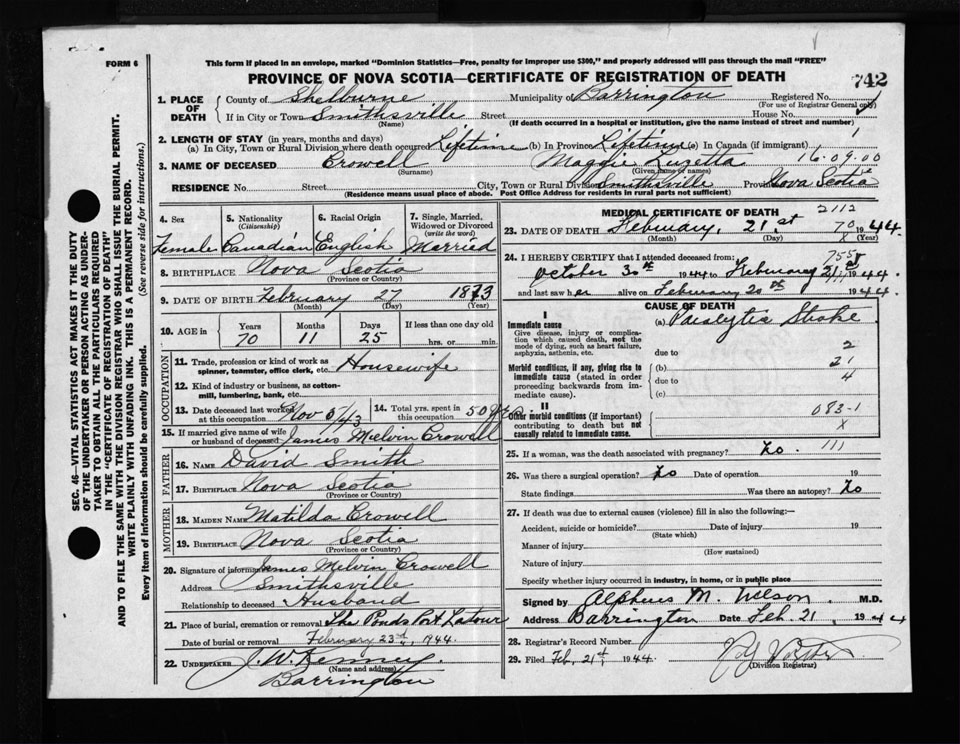 FORM 6
This form if placed in an envelope, marked "Dominion Statistics—Free, penalty for improper use $300," and properly addressed will pass through the mail "FREE"
PROVINCE OF NOVA SCOTIA—CERTIFICATE OF REGISTRATION OF DEATH
742
1. PLACE OF DEATH
County of Shelburne Municipality of Barrington Registered No.
(For use of Registrar General only)
If in City or Town Smithsville Street House No.
(Name) (If death occurred in a hospital or institution, give the name instead of street and number)
2. LENGTH OF STAY (in years, months and days)
(a) In City, Town or Rural Division where death occurred Lifetime (b) In Province Lifetime (c) In Canada (if immigrant)
3. NAME OF DECEASED Crowell Maggie Luzetta 16.09.00
(Surname) (Given name or names)
RESIDENCE No. Street City, Town or Rural Division Smithsville Province Nova Scotia
(Residence means usual place of abode. Post Office Address for residents in rural parts not sufficient)
4. Sex
Female
5. Nationality
(Citizenship)
Canadian
6. Racial Origin
English
7. Single, Married, Widowed or Divorced
(write the word)
Married
8. BIRTHPLACE Nova Scotia
(Province or Country)
9. DATE OF BIRTH February 27 1873
(Month) (Day) (Year)
10. AGE in
Years Months Days If less than one day old
70 11 25 hrs. or min.
OCCUPATION
11. Trade, profession or kind of work as spinner, teamster, office clerk, etc. Housewife
12. Kind of industry or business, as cotton-mill, lumbering, bank, etc.
13. Date deceased last worked at this occupation Nov 6/43
14. Total yrs. spent in this occupation 50 yrs.
15. If married give name of wife or husband of deceased James Melvin Crowell
FATHER
16. NAME David Smith
17. BIRTHPLACE Nova Scotia
(Province or Country)
MOTHER
18. MAIDEN NAME Matilda Crowell
19. BIRTHPLACE Nova Scotia
(Province or Country)
20. Signature of informant James Melvin Crowell
Address Smithsville
Relationship to deceased Husband
21. Place of burial, cremation or removal The Ponds Port Latour
Date of burial or removal February 23rd, 1944.
22. UNDERTAKER J. W. Kenney.
(Name and address)
Barrington
MEDICAL CERTIFICATE OF DEATH 2112
23. DATE OF DEATH February, 21st 1944.
(Month) (Day) (Year)
70
X
24. I HEREBY CERTIFY that I attended deceased from:
755
October 30th 1944 to February 21st 1944.
and last saw her alive on February 20th 1944.
CAUSE OF DEATH
I
Immediate cause
Give disease, injury or complication which caused death, not the mode of dying, such as heart failure, asphyxia, asthenia, etc.
(a) Paralytic Stroke.
due to
2
Morbid conditions, if any, giving rise to immediate cause (stated in order proceeding backwards from immediate cause).
(b) 21
due to 4
(c)
II
Other morbid conditions (if important) contributing to death but not causally related to immediate cause.
083-1
X
25. If a woman, was the death associated with pregnancy? No. 111
26. Was there a surgical operation? No Date of operation 19
State findings Was there an autopsy? No
27. If death was due to external causes (violence) fill in also the following:—
Accident, suicide or homicide? Date of injury 19
(State which)
Manner of injury
(How sustained)
Nature of injury
Specify whether injury occurred in industry, in home, or in public place
Signed by Alpheus M. Wilson M.D.
Address Barrington Date Feb. 21 1944
28. Registrar's Record Number
29. Filed Feb, 21st 1944.
(Division Registrar)
SEC. 46—VITAL STATISTICS ACT MAKES IT THE DUTY
OF THE UNDERTAKER OR PERSON ACTING AS UNDERTAKER
TO OBTAIN ALL THE PARTICULARS REQUIRED
IN THE "CERTIFICATE OF REGISTRATION OF DEATH"
AND TO FILE THE SAME WITH THE DIVISION REGISTRAR WHO SHALL ISSUE THE BURIAL PERMIT.
WRITE PLAINLY WITH UNFADING INK. THIS IS A PERMANENT RECORD.
Every item of information should be carefully supplied. (See reverse side for instructions.)